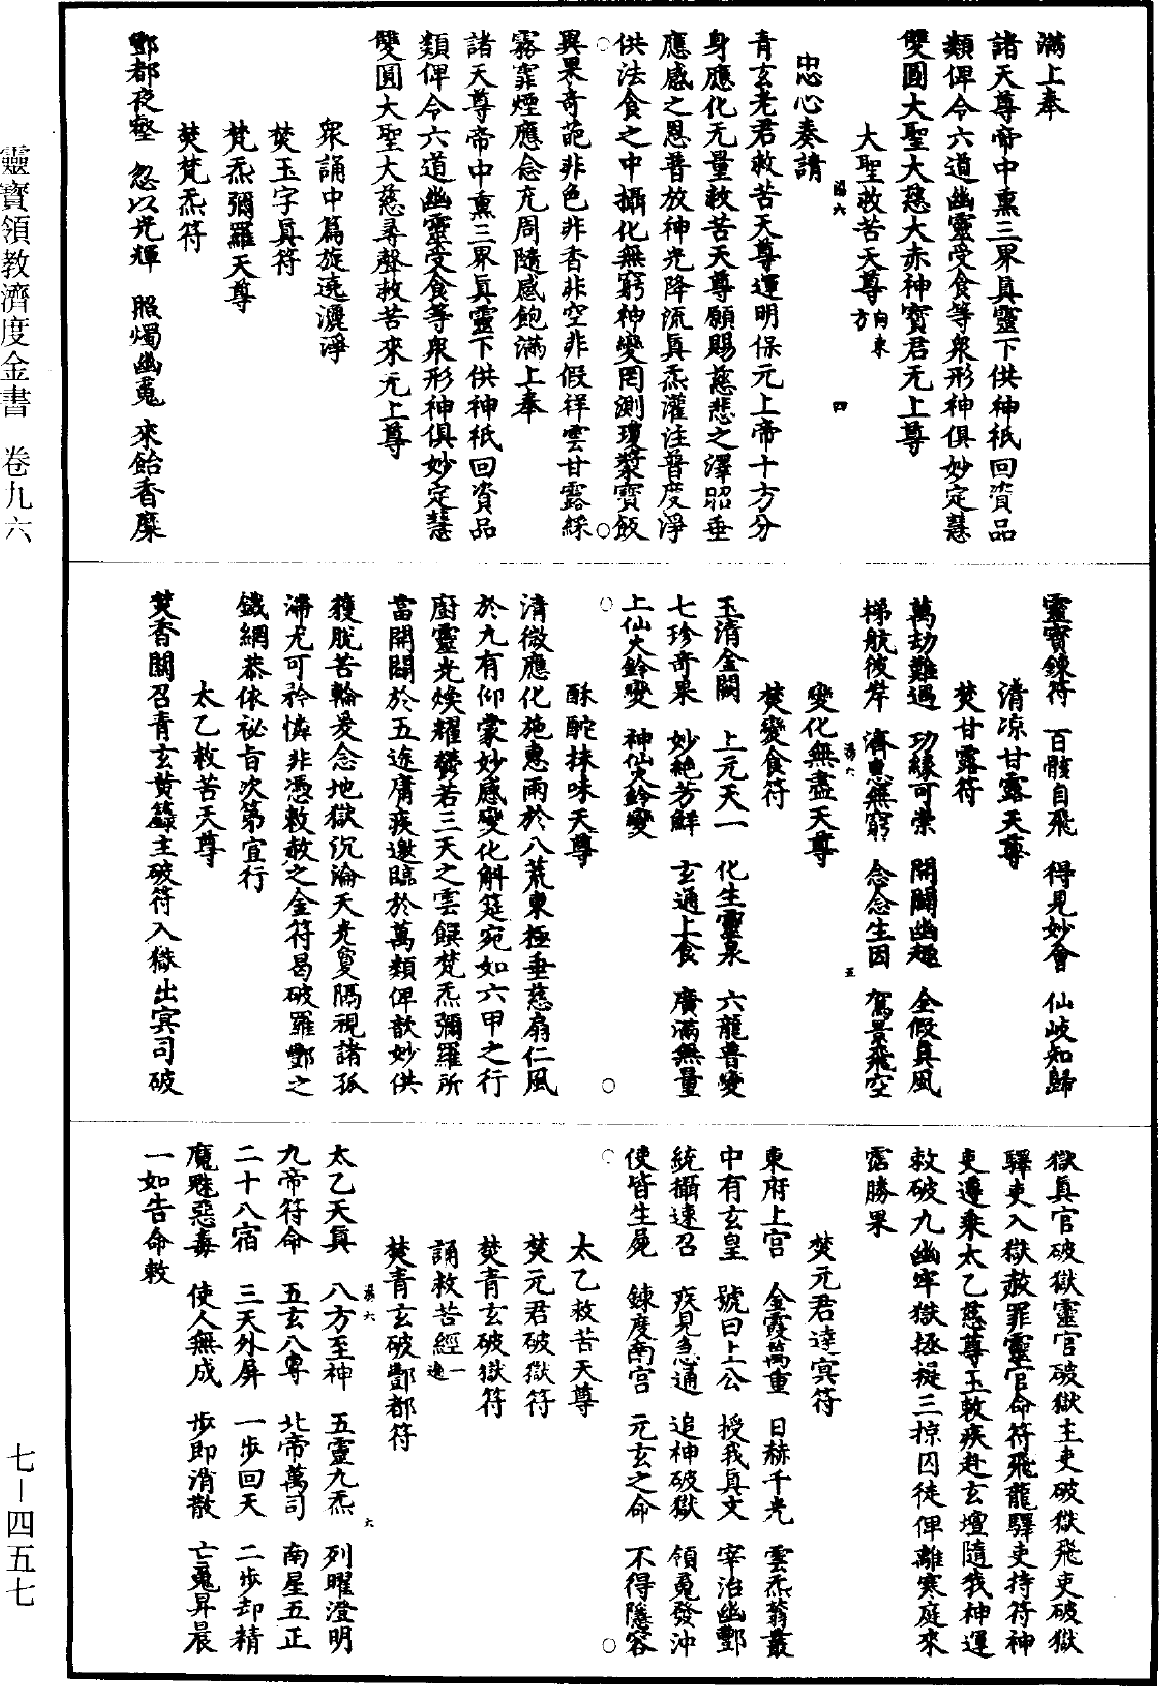 滿上奉
諸天尊帝中熏三界真靈下供神祇回資品
類俾令六道幽靈受食等衆形神俱妙定慧
雙圓大聖大慈大赤神寶君无上尊
大聖救苦天尊向東方
忠心奏請
青玄老君救苦天尊運明保元上帝十方分
身應化无量救苦天尊願賜慈悲之澤昭垂
應感之恩普放神光降流真炁灌注普度淨
供法食之中攝化無窮神變罔測瓊漿寶飯
異果奇葩非色非香非空非假祥雲甘露綵
霧霏煙應念充周隨感飽滿上奉
諸天尊帝中熏三界真靈下供神祇回資品
類俾令六道幽靈受食等衆形神俱妙定慧
雙圓大聖大慈尋聲救苦來无上尊
衆誦中篇旋遶灑淨
焚玉字真符
梵炁彌羅天尊
焚梵炁符
酆都夜壑　忽以光輝　照燭幽蒐　來飴香糜
靈寶鍊符　百骸自飛　得見妙會　仙岐知歸
清凉甘露天尊
焚甘露符
萬劫難遇　功緣可崇　開闢幽趣　全假真風
梯航彼岸　濟思無窮　念念生因　駕景飛空
變化無盡天尊
焚變食符
玉清金闕　上元天一　化生靈泉　六龍普變
七珍奇果　妙絶芳鮮　玄通上食　廣滿無量
上仙火鈴變　神仙火鈴變
酥酡抹味天尊
清微應化施惠雨於八荒東極垂慈扇仁風
於九有仰蒙妙感變化斛筵宛如六甲之行
厨靈光焕耀鬱若三天之雲饌梵炁彌羅所
當開闢於五途庸疾邀臨於萬類俾歆妙供
獲脱苦輪爰念地獄沉淪天光敻隔視諸孤
滯尤可矜憐非憑敕赦之金符曷破羅酆之
鐵網恭依祕旨次第宣行
太乙救苦天尊
焚香關召青玄黄籙主破符入獄出冥司破
獄真官破獄靈官破獄主吏破獄飛吏破獄
驛吏入獄赦罪靈官命符飛龍驛吏持符神
吏遵乘太乙慈尊玉敕疾赴玄壇隨我神運
敕破九幽牢獄拯凝三掠囚徒俾離寒庭來
霑勝果
焚元君達冥符
東府上宫　金霞萬重　日赫千光　雲炁蓊叢
中有玄皇　號曰上公　授我真文　宰治幽酆
統攝速召　疾見忽通　追神破獄　領蒐發沖
使皆生晃　鍊度南宫　元玄之命　不得隱容
太乙救苦天尊
焚元君破獄符
焚青玄破獄符
誦救苦經一遍
焚青玄破酆都符
太乙天真　八方至神　五靈九炁　列曜澄明
九帝符命　五玄八尊　北帝萬司　南星五正
二十八宿　三天外屏　一步回天　二步却精
魔魁惡毒　使人無成　步即消散　亡蒐昇晨
一如告命敕
靈寶領教濟度金書　卷九六
七—四五七